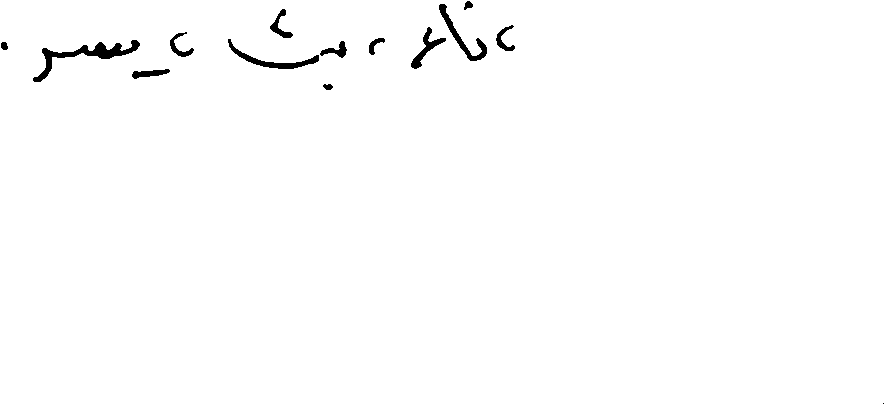 ، ناء ، بث ، يسر .